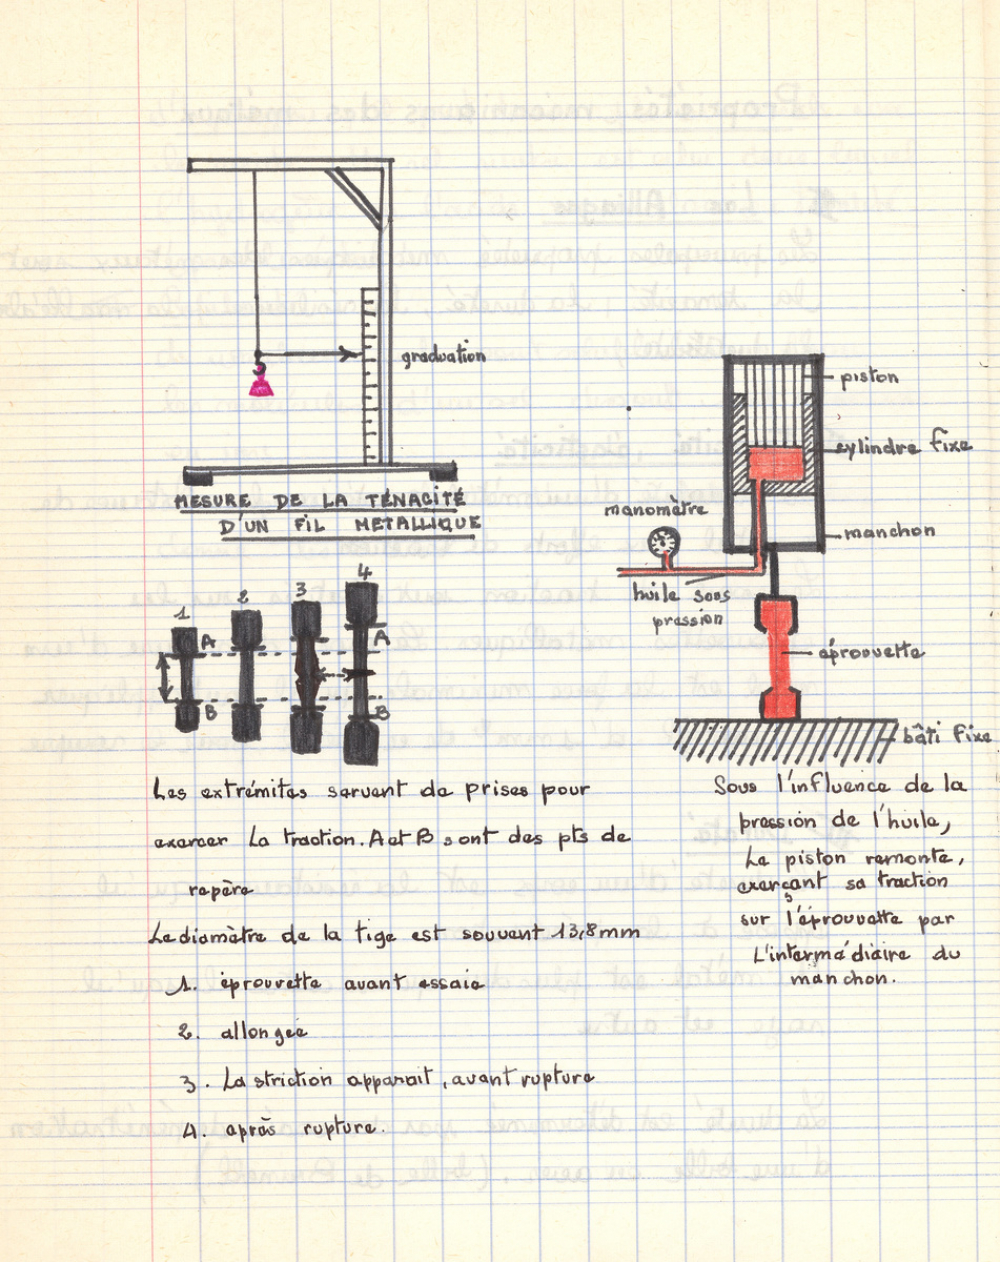 graduation
MESURE DE LA TÉNACITÉ
D'UN FIL METALLIQUE
piston
cylindre fixe
manomètre
manchon
huile sous
pression
éprouvette
bâti fixe
1 2 3 4
A A
B B
Les extrémites servent de prises pour
exercer la traction. A et B sont des pts de
repère
Le diamètre de la tige est souvent 13,8mm
1. éprouvette avant essaie
2. allongée
3. La striction apparait, avant rupture
4. après rupture.
Sous l'influence de la
pression de l'huile,
Le piston remonte,
exerçant sa traction
sur l'éprouvette par
L'intermédiaire du
manchon.